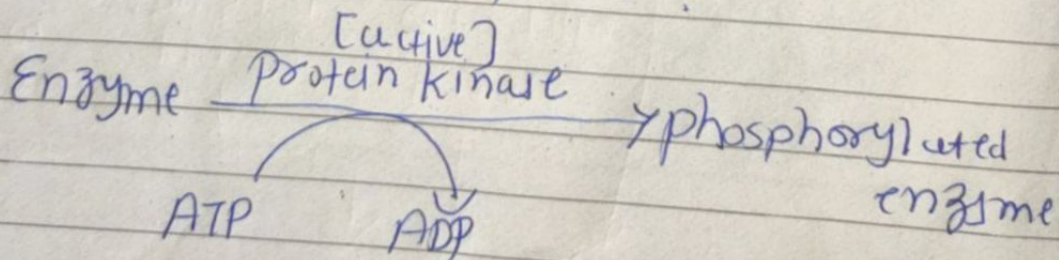 [active]
Enzyme protein kinase
phosphorylated
enzyme
ATP ADP